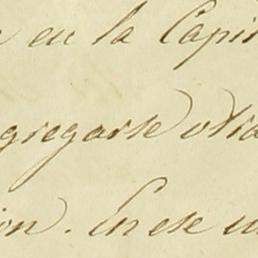 en la Capi
gregarse otra
ion. En ese